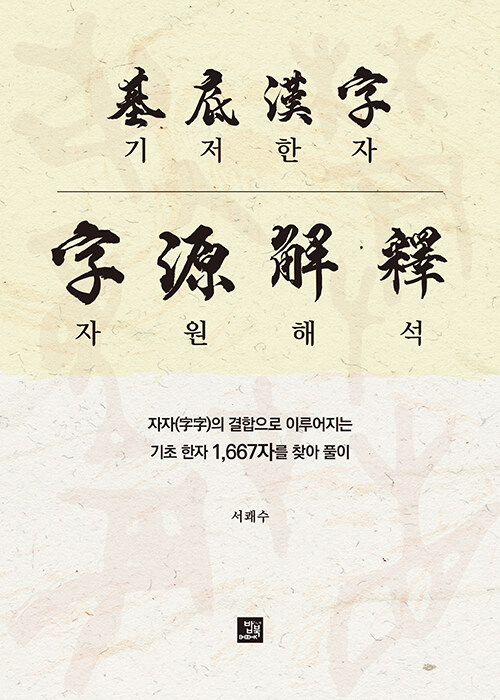 基底漢字
기저한자
字源解釋
자원해석
자자(字字)의 결합으로 이루어지는
기초 한자 1,667자를 찾아 풀이
서쾌수
밥북
BOOK